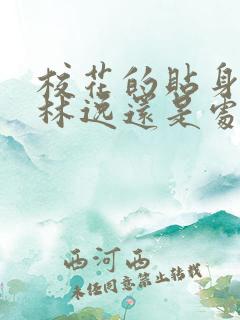 校花的貼身
林逸還是處
西河西
未经同意禁止转载